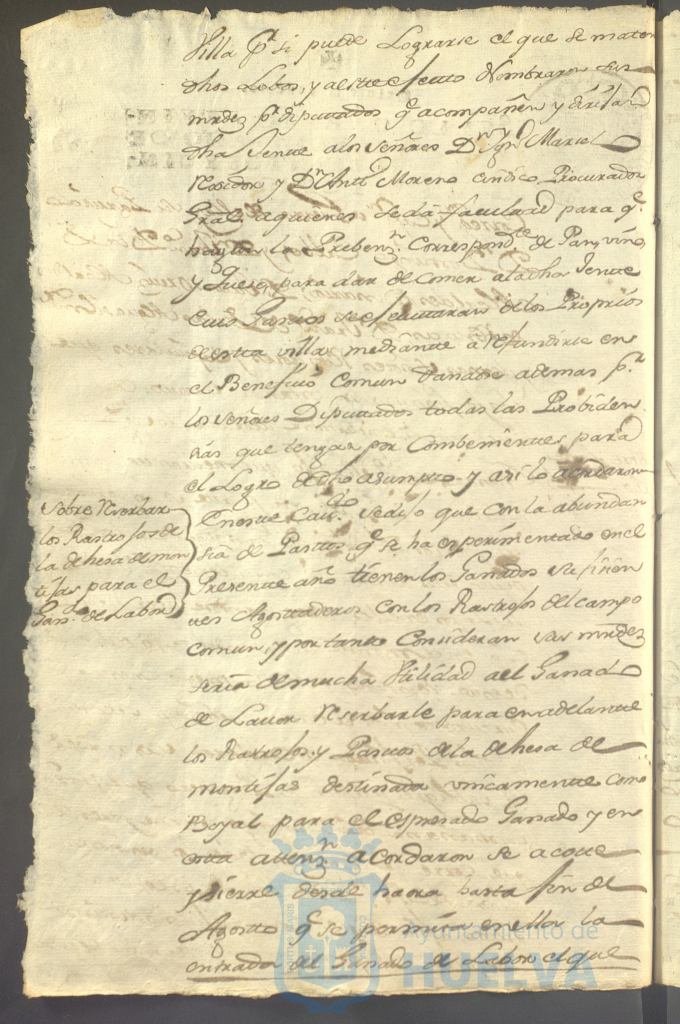 Villa p.ª si puede Lograrse el que se maten
dhos Lobos, y al este efecto Nombraron sus
mrdez p.r diputados q.e acompañen y dirijan
dha Jente a los Señores D.n Ygn.o Marcel
Rexidor y D.n Ant.o Moreno cindico Procurador
Gral. a quienes se da facultad para q.e
hagan la Prebenz.n Correspond.te de Pan, vino
y Queso, para dar de comer a la dha Jente
Cuios Gastos se efectuaran de los Proprios
de esta villa mediante a Refundirse en
el Beneficio Comun dandose ademas p.r
los señores Diputados todas las Probiden
zias que tengan por Combenientes para
el Logro de dho asumpto y asi lo acordaron
Sobre Reserbar
los Rastrojos de
la dehesa de mon
tijas para el
Gan.do de Labor
En este Cav.do se dijo que con la abundan
zia de Pastos q.e se ha experimentado en el
Presente año tienen los Ganados suficien
tes Agostaderos con los Rastrojos del campo
comun, y por tanto Consideran sus mrdez
seria de mucha Utilidad al Ganado
de Lavor Reserbarle para en adelante
los Rastrojos y Pastos de la dehesa de
montijas destinada unicamente como
Boyal para el espresado Ganado y en
esta attenz.n acordaron se acote
y sierre desde haora hasta fin de
Agosto q.e se permita en ella la
entrada del Ganado de Labor el que
Ayuntamiento de
HUELVA